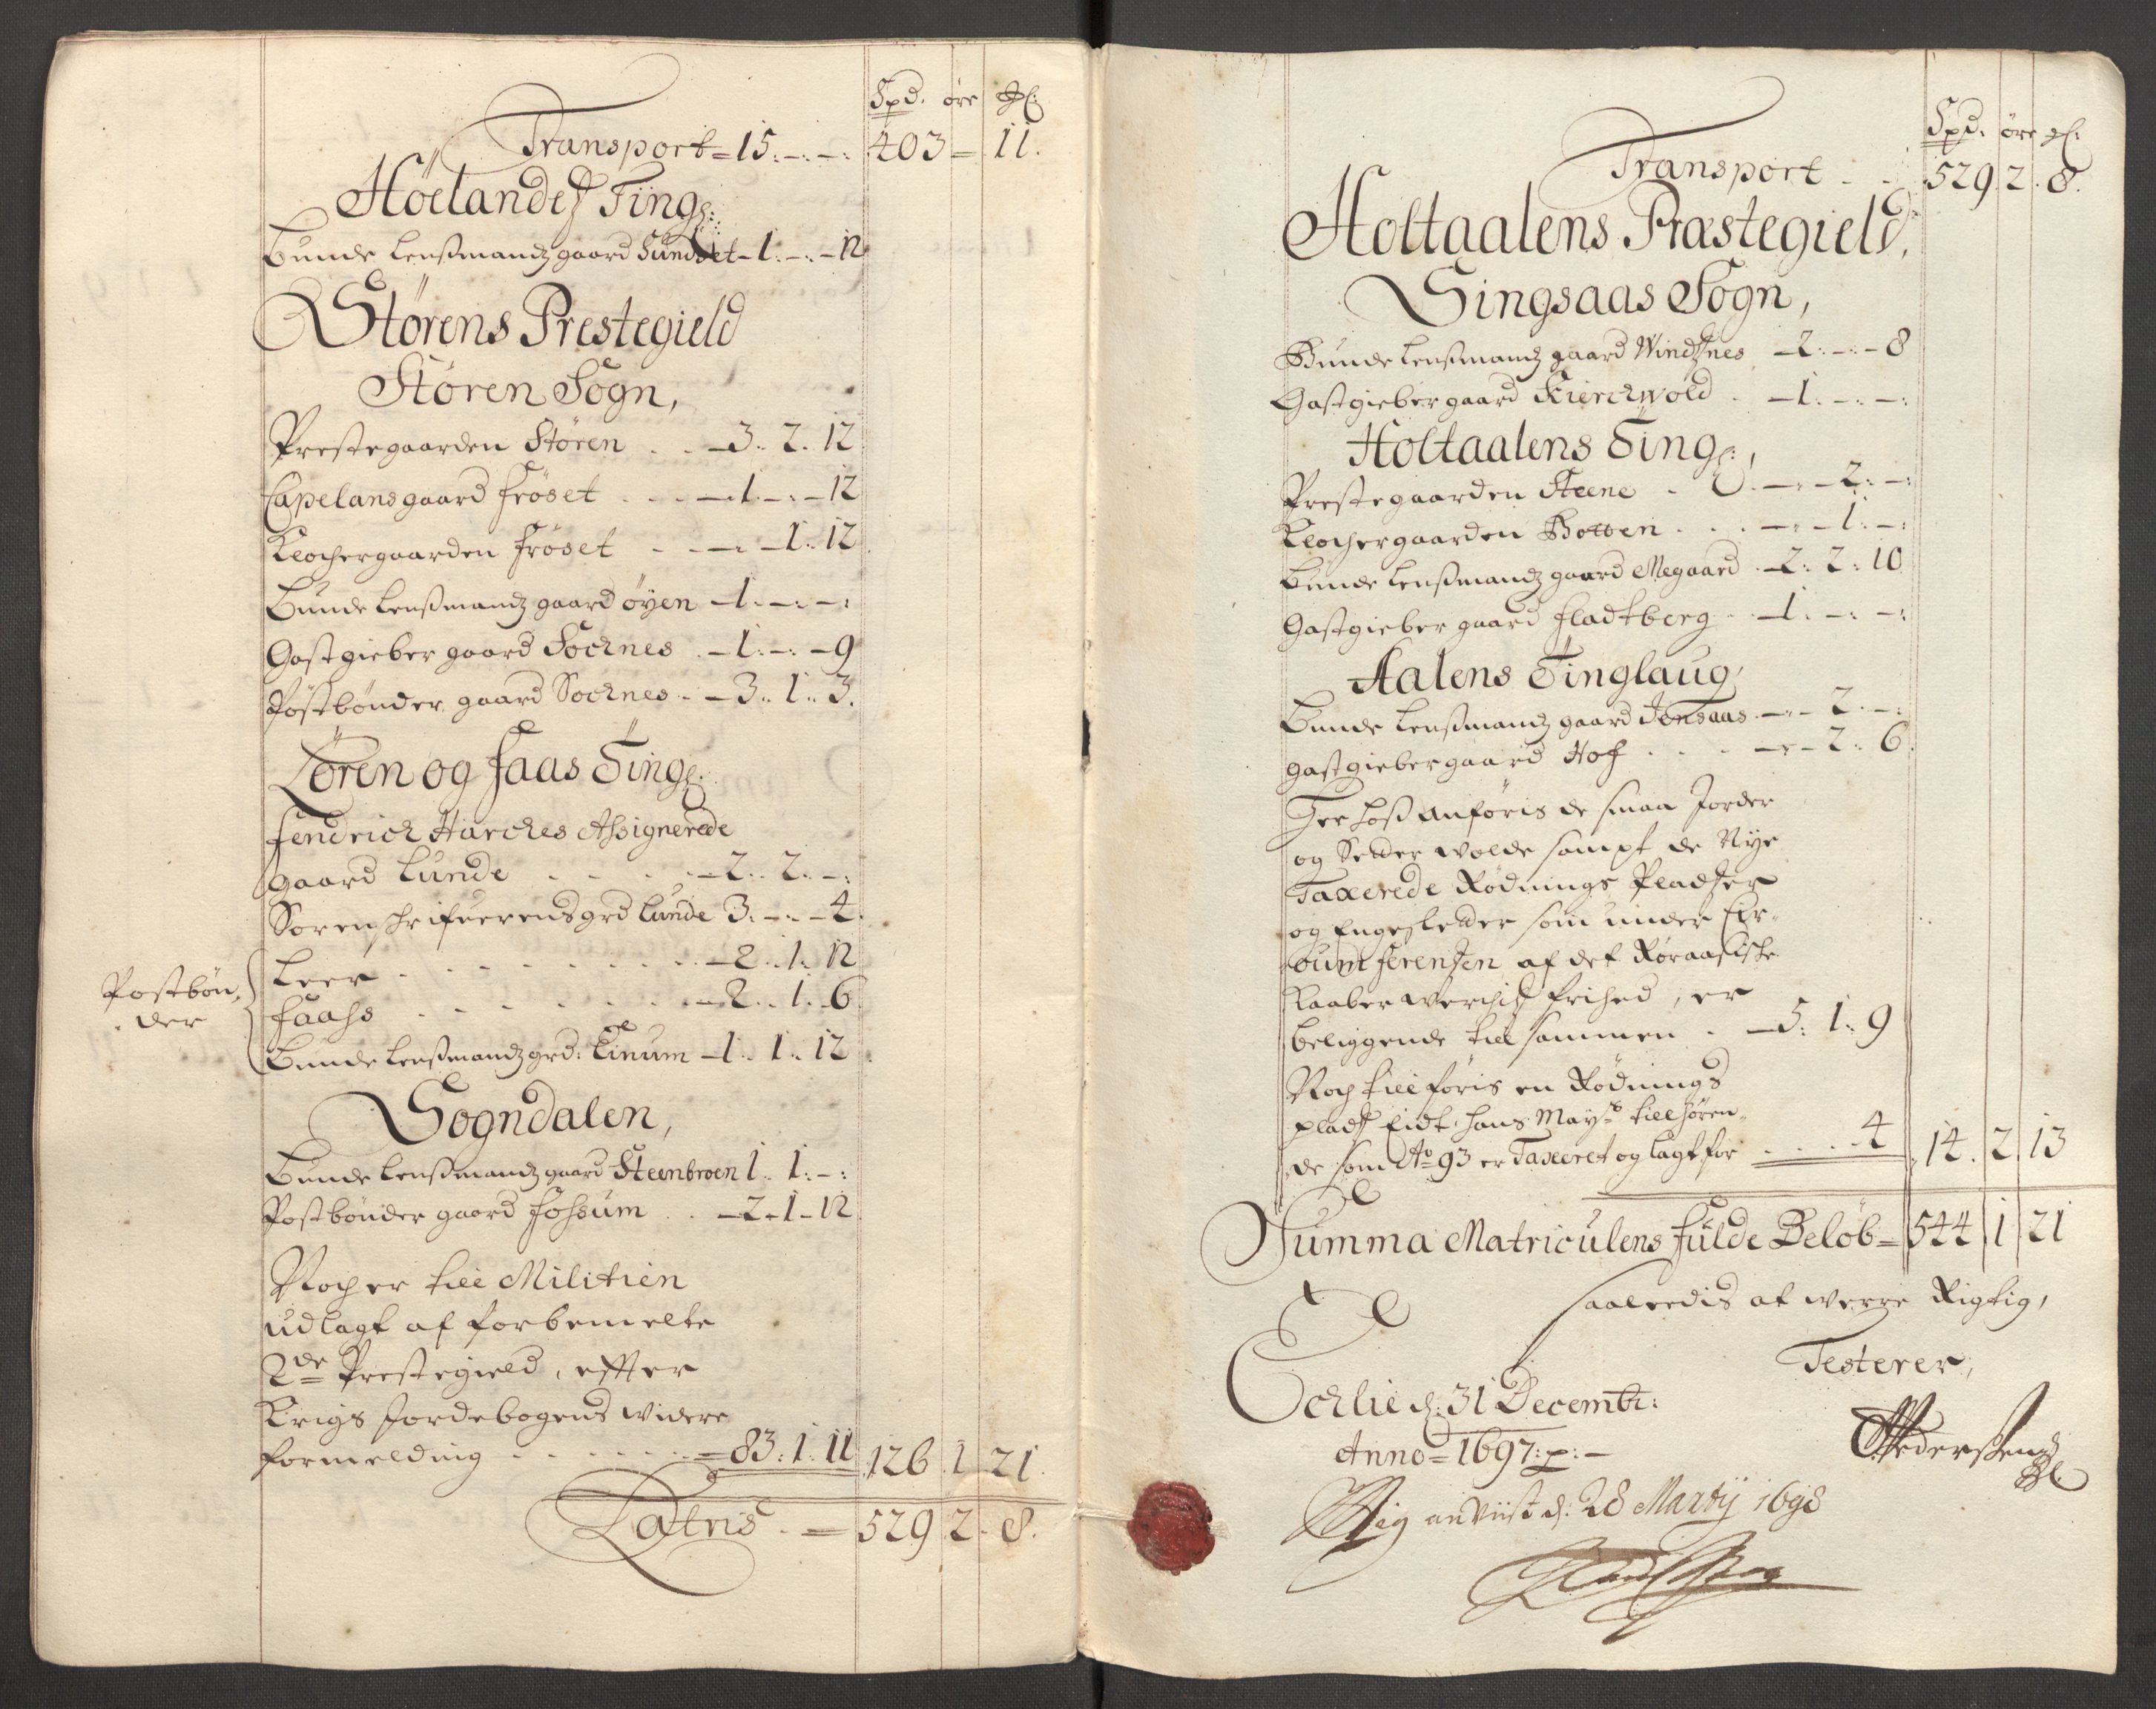 Spd. öre
Transport = 15. -. -. 403 = 11.
Höelandes Ting:
Bunde Lensmandz gaard Sundset - 1. -. - 12
Störens Prestegield
Stören Sogn,
Prestegaarden Stören . . - 3. 2. 12
Capelans gaard fröset . . . - 1. -. - 12
Klochergaarden fröset . . - - 1. 12
Bunde Lensmandz gaard öyen - 1. -. -:
Gastgieber gaard Sochnes . - 1. -. - 9
Postbönder gaard Sochnes . - 3. 1. 3.
Lören og faas Ting:
fendrich Harches Assignerede
gaard Lunde . . . . - 2. 2. -.
Sorenschrifuerens grd Lunde 3. -. - 4.
Postbön-
der
Leer . . . . . . . - 2. 1. 12
faass . . . . . . - 2. 1. 6
Bunde Lensmandz grd: Linum - 1. 1. 12
Sogndalen,
Bunde Lensmandz gaard Steenbroen 1. 1. -:
Postbönder gaard fossum . . - 2. 1. 12
Noch er till Militien
udlagt af forbemelte
2de Prestegield, effter
Krigs Jordebogens widere
formelding . . . . . . = 83. 1. 11 126 1 21.
Lateris . = 529 2. 8.
Spd. öre
Transport . . 529 2. 8.
Holtaalens Præstegield,
Singsaas Sogn,
Bunde Lensmandz gaard Windsnes - 2. -. - 8
Gastgieber gaard Kierchwold . - 1. -. -:
Holtaalens Ting:,
Prestegaarden Steene . . -. - 2. -:
Klochergaarden Botten . . . -. - 1. -:
Bunde Lensmandz gaard Megaard . - 2. 2. 10
Gastgieber gaard fladtberg . . - 1. -. -:
Aalens Tinglaug,
Bunde Lensmandz gaard Jensaas . -. - 2. -:
gastgieber gaard Hof . . . -. - 2. 6.
Her hoss anföris de smaa Jorder
og Setter wolde sampt de Nye
Taxerede Rödnings Pladser
og Engesletter som under Cir-
cumferensen af det Röraasiske
Kaaber werchis frihed, er
beliggende till sammen . - 5. 1. 9
Noch till föris en Rödnings
plads Eidt, hans Mayts tillhören-
de som Ao 93 er Taxeret og lagt for . . . . 4 14. 2 13
Summa Matriculens fulde Belöb = 544 1 21
saaledis at werre Rigtig,
Testerer,
Echlie d: 31 Decembr:
Anno = 1697: p: -
Pedersen
anviist d: 28 Martij 1698